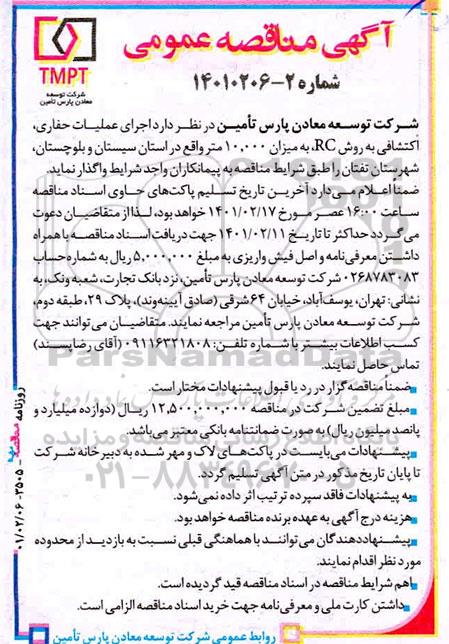 آگهی مناقصه عمومی
شماره ۲-۱۴۰۱۰۲۰۶
TMPT
شرکت توسعه
معادن پارس تأمین
شرکت توسعه معادن پارس تأمین در نظر دارد اجرای عملیات حفاری،
اکتشافی به روش RC، به میزان ۱۰,۰۰۰ متر واقع در استان سیستان و بلوچستان،
شهرستان تفتان را طبق شرایط مناقصه به پیمانکاران واجد شرایط واگذار نماید.
ضمناً اعلام می‌دارد آخرین تاریخ تسلیم پاکت‌های حاوی اسناد مناقصه
ساعت ۱۶:۰۰ عصر مورخ ۱۴۰۱/۰۲/۱۷ خواهد بود، لذا از متقاضیان دعوت
می‌گردد حداکثر تا تاریخ ۱۴۰۱/۰۲/۱۱ جهت دریافت اسناد مناقصه با همراه
داشتن معرفی‌نامه و اصل فیش واریزی به مبلغ ۵,۰۰۰,۰۰۰ ریال به شماره حساب
۰۲۶۸۷۸۳۰۸۳ شرکت توسعه معادن پارس تأمین، نزد بانک تجارت، شعبه ونک، به
نشانی: تهران، یوسف‌آباد، خیابان ۶۴ شرقی (صادق آیینه‌وند)، پلاک ۲۹، طبقه دوم،
شرکت توسعه معادن پارس تأمین مراجعه نمایند. متقاضیان می‌توانند جهت
کسب اطلاعات بیشتر با شماره تلفن: ۰۹۱۱۶۳۲۱۸۰۸ (آقای رضاپسند)
تماس حاصل نمایند.
ضمناً مناقصه‌گزار در رد یا قبول پیشنهادات مختار است.
مبلغ تضمین شرکت در مناقصه ۱۲,۵۰۰,۰۰۰,۰۰۰ ریال (دوازده میلیارد و
پانصد میلیون ریال) به صورت ضمانتنامه بانکی معتبر می‌باشد.
پیشنهادات می‌بایست در پاکت‌های لاک و مهر شده به دبیرخانه شرکت
تا پایان تاریخ مذکور در متن آگهی تسلیم گردد.
به پیشنهادات فاقد سپرده ترتیب اثر داده نمی‌شود.
هزینه درج آگهی به عهده برنده مناقصه خواهد بود.
پیشنهاددهندگان می‌توانند با هماهنگی قبلی نسبت به بازدید از محدوده
مورد نظر اقدام نمایند.
اهم شرایط مناقصه در اسناد مناقصه قید گردیده است.
داشتن کارت ملی و معرفی‌نامه جهت خرید اسناد مناقصه الزامی است.
روابط عمومی شرکت توسعه معادن پارس تأمین
روزنامه مناقصه ۳۵۰۵- ۰۱/۰۲/۰۶
ParsNamadData